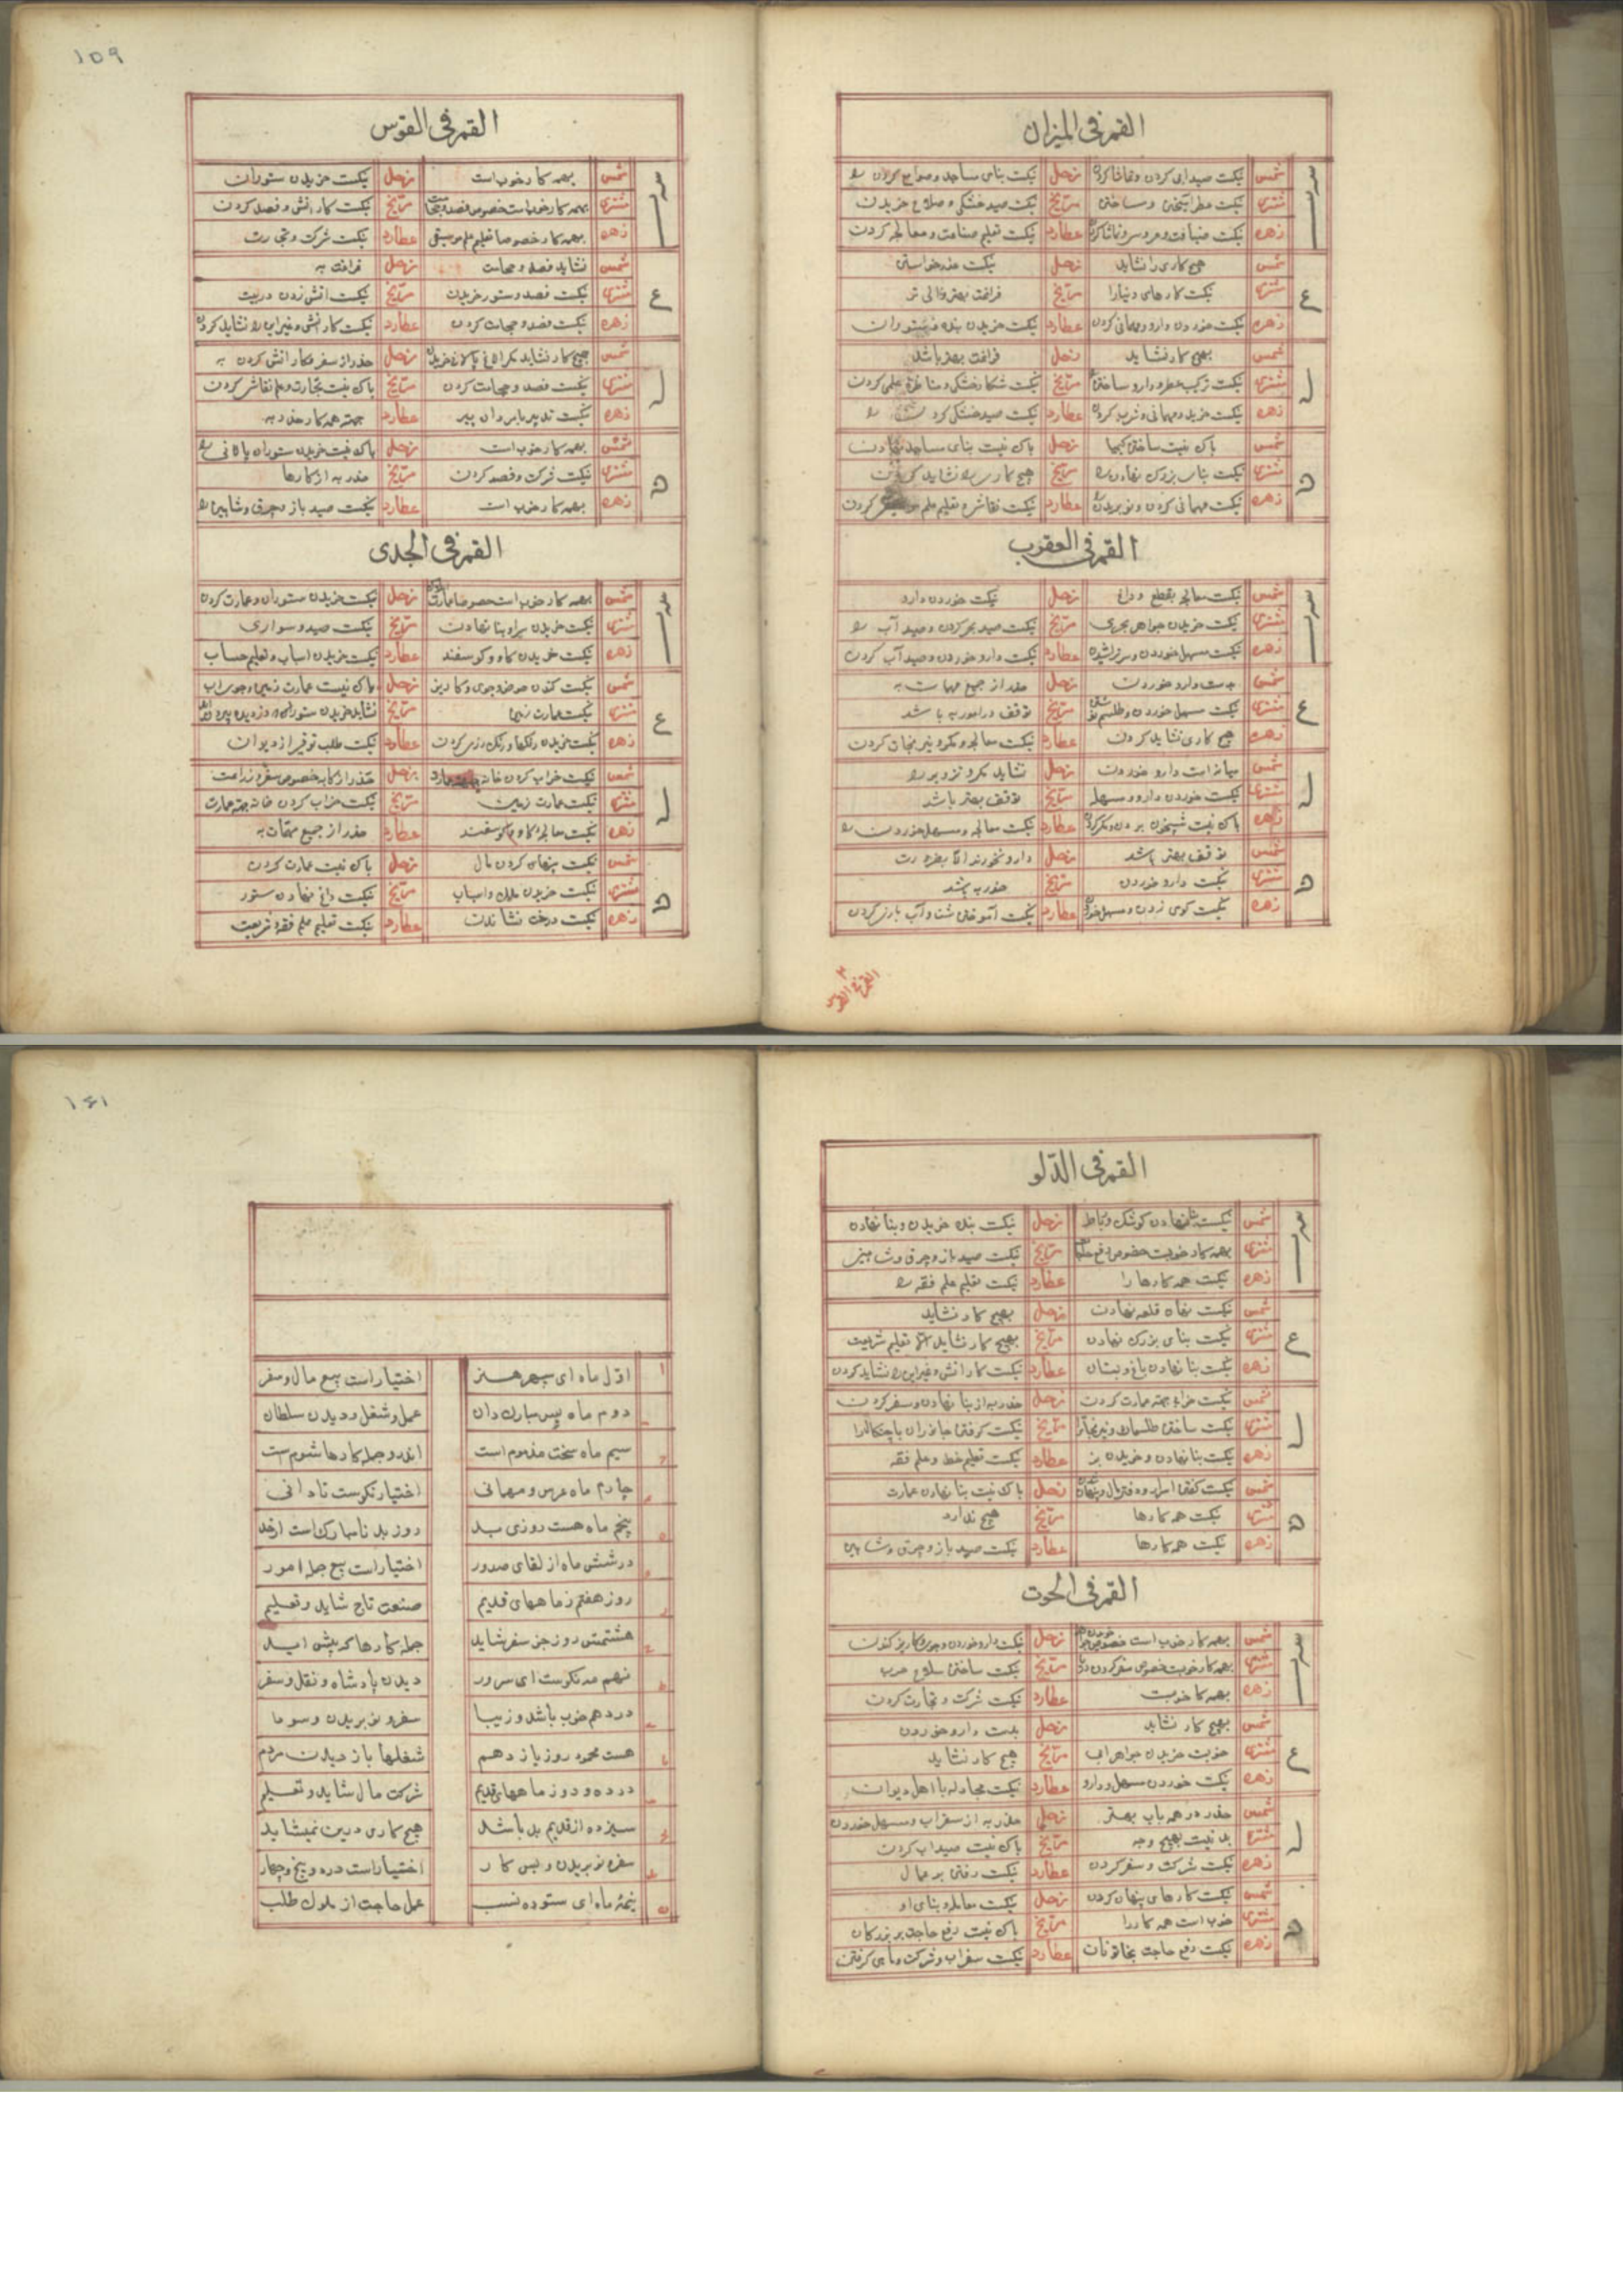 القمر فی المیزان
شمس نیکست صید ابی کردن و تماشا کردن زحل نیکست بنای مساجد و صوامع کردن را
مشتری نیکست عطر امیختن و ساختن مریخ نیکست صید خشکی و سلاح خریدن
زهره نیکست ضیافت و عروسی و تماشا کردن عطارد نیکست تعلیم صناعت و معالجه کردن
شمس هیچ کاری را نشاید زحل نیکست عذر خواستن
مشتری نیکست کارهای دنیا را مریخ فراغت بهتر
زهره نیکست خوردن دارو و مهمانی کردن عطارد نیکست خریدن بنده و ستوران
شمس بهیچ کار نشاید زحل فراغت بهتر باشد
مشتری نیکست ترکیب عطر و دارو ساختن مریخ نیکست شکار خشکی و مناظره علمی کردن
زهره نیکست خرید و مهمانی و شرید کردن عطارد نیکست صید خشکی کردن را
شمس باک نیست ساختن کیمیا زحل باک نیست بنای مساجد نهادن
مشتری نیکست بنای بزرک نهادن را مریخ هیچ کاری را نشاید کردن
زهره نیکست مهمانی کردن و نو بریدن عطارد نیکست نقاشی و تعلیم علم کردن
القمر فی العقرب
شمس نیکست معالجه بقطع و داغ زحل نیکست خوردن دارو
مشتری نیکست خریدن جواهر بحری مریخ نیکست صید بحر کردن و صید آب را
زهره نیکست مسهل خوردن و سر تراشیدن عطارد نیکست دارو خوردن و صید آب کردن
شمس بدست دارو خوردن زحل حذر از جمیع مهمات به
مشتری نیکست مسهل خوردن و طلسم مریخ توقف در امور به باشد
زهره هیچ کاری نشاید کردن عطارد نیکست معالجه و مکر و نیرنجات کردن
شمس میانه است دارو خوردن زحل نشاید مکر و تزویر را
مشتری نیکست خوردن دارو و مسهل مریخ توقف بهتر باشد
زهره باک نیست شبیخون بردن و مکر کردن عطارد نیکست معالجه و مسهل خوردن را
شمس توقف بهتر باشد زحل دارو نخورند الا بضرورت
مشتری نیکست دارو خوردن مریخ حذر به باشد
زهره نیکست کوی زدن و مسهل خوردن عطارد نیکست آموختن شنا و آب بازی کردن
القمر فی القوس
۱۵۹
القمر فی القوس
شمس بهمه کار خوب است زحل نیکست خریدن ستوران
مشتری بهمه کار خوب است خصوص فصد و حجامت مریخ نیکست کار اتش و فصد کردن
زهره بهمه کار خصوصا تعلیم علم موسیقی عطارد نیکست شرکت و تجارت
شمس نشاید فصد و حجامت زحل فراغت به
مشتری نیکست فصد و ستور خریدن مریخ نیکست اتش زدن
زهره نیکست فصد و حجامت کردن عطارد نیکست کار اتش و غیر این را نشاید کردن
شمس هیچ کار نشاید مکر الاغ پالانی خریدن زحل حذر از سفر و کار اتش کردن به
مشتری نیکست فصد و حجامت کردن مریخ باک نیست تجارت و علم نقاشی کردن
زهره نیکست تدبیر با مردان پیر عطارد جهة همه کار حذر به
شمس بهمه کار خوب است زحل باک نیست خریدن ستوران پالانی را
مشتری نیکست شرکت و فصد کردن مریخ حذر به از کارها
زهره بهمه کار خوب است عطارد نیکست صید باز و چرق و شاهین را
القمر فی الجدی
شمس بهمه کار خوب است خصوصا عمارت زحل نیکست خریدن ستوران و عمارت کردن
مشتری نیکست خریدن سرا و بنا نهادن مریخ نیکست صید و سواری
زهره نیکست خریدن کاو و کوسفند عطارد نیکست خریدن اسباب و تعلیم حساب
شمس نیکست کندن حوض و جوی و کاریز زحل باک نیست عمارت زمین و جوی اب
مشتری نیکست عمارت زمین مریخ نشاید خریدن ستور
زهره نیکست خریدن رنکها و رنک رزی کردن عطارد نیکست طلب توفیر از دیوان
شمس نیکست خراب کردن خانه زحل حذر از کار به خصوص سفر و زراعت
مشتری نیکست عمارت زمین مریخ نیکست خراب کردن خانه جهة عمارت
زهره نیکست معالجه کاو و کوسفند عطارد حذر از جمیع مهمات به
شمس نیکست پنهان کردن مال زحل باک نیست عمارت کردن
مشتری نیکست خریدن ملک و اسباب مریخ نیکست داغ نهادن ستور
زهره نیکست درخت نشاندن عطارد نیکست تعلیم علم فقه و شریعت
القمر فی الدلو
شمس نیکست بنا نهادن کوشک و رباط زحل نیکست بنده خریدن و بنا نهادن
مشتری بهمه کار خوبست خصوص مریخ نیکست صید باز و چرق و شاهین
زهره نیکست همه کارها را عطارد نیکست تعلیم علم فقه را
شمس نیکست بناء قلعه نهادن زحل بهیچ کار نشاید
مشتری نیکست بنای بزرک نهادن مریخ بهیچ کار نشاید الا تعلیم شریعت
زهره نیکست بنا نهادن باغ و بستان عطارد نیکست کار اتش و غیر این را نشاید کردن
شمس نیکست خرابی جهة عمارت کردن زحل حذر به از بنا نهادن و سفر کردن
مشتری نیکست ساختن طلسمات و نیرنجات را مریخ نیکست کرفتن جانوران با چنکال را
زهره نیکست بنا نهادن و خریدن بز عطارد نیکست تعلیم خط و علم فقه
شمس نیکست کفتن اسرار و دفن مال زحل باک نیست بنا نهادن عمارت
مشتری نیکست همه کارها مریخ هیچ ندارد
زهره نیکست همه کارها عطارد نیکست صید باز و چرق و شاهین
القمر فی الحوت
شمس بهمه کار خوب است خصوص زحل نیکست دارو خوردن و جوی و کاریز کندن
مشتری بهمه کار خوبست خصوص سفر کردن مریخ نیکست ساختن سلاح حرب
زهره بهمه کار خوبست عطارد نیکست شرکت و تجارت کردن
شمس بهیچ کار نشاید زحل بدست دارو خوردن
مشتری خوبست خریدن جواهر ابی مریخ هیچ کار نشاید
زهره نیکست خوردن مسهل و دارو عطارد نیکست مجادله با اهل دیوان
شمس حذر در همه باب بهتر زحل حذر به از سفر اب و مسهل خوردن
مشتری بد نیست بهیچ وجه مریخ باک نیست صید اب کردن
زهره نیکست شرکت و سفر کردن عطارد نیکست رفتن بر عمال
شمس نیکست کارهای پنهان کردن زحل نیکست معامله و بنای او
مشتری خوب است همه کار را مریخ باک نیست رفع حاجت بر بزرکان
زهره نیکست رفع حاجت بخاتونان عطارد نیکست سفر اب و شرکت و ماهی کرفتن
۱۶۱
اول ماه ای سپهر هنر اختیار است بیع مال و سفر
دوم ماه بس مبارک دان عمل و شغل و دیدن سلطان
سیم ماه سخت مذموم است اندرو جمله کارها شوم ست
چارم ماه عرس و مهمانی اختیار نکوست تا دانی
پنجم ماه هست روزی بد روز بد نامبارک است
در ششم ماه از لقای صدور اختیار است بیع جمله امور
روز هفتم ز ماههای قدیم صنعت تاج شاید و تعلیم
هشتمین روز جز سفر شاید جمله کارها که پیش اید
نهم مه نکوست ای سرور دیدن پادشاه و نقل و سفر
در دهم خوب باشد و زیبا سفر و نو بریدن و سودا
هست محمود روز یازدهم شغلها باز دیدن مردم
در ده و دو ز ماههای قدیم شرکت مال شاید و تعلیم
سیزده از قدیم بد باشد هیچ کاری درین نمیشاید
سفر و نو بریدن و بس کار اختیار است در ده و پنج و چهار
نیمه ماه ای ستوده نسب عمل حاجت از ملوک طلب